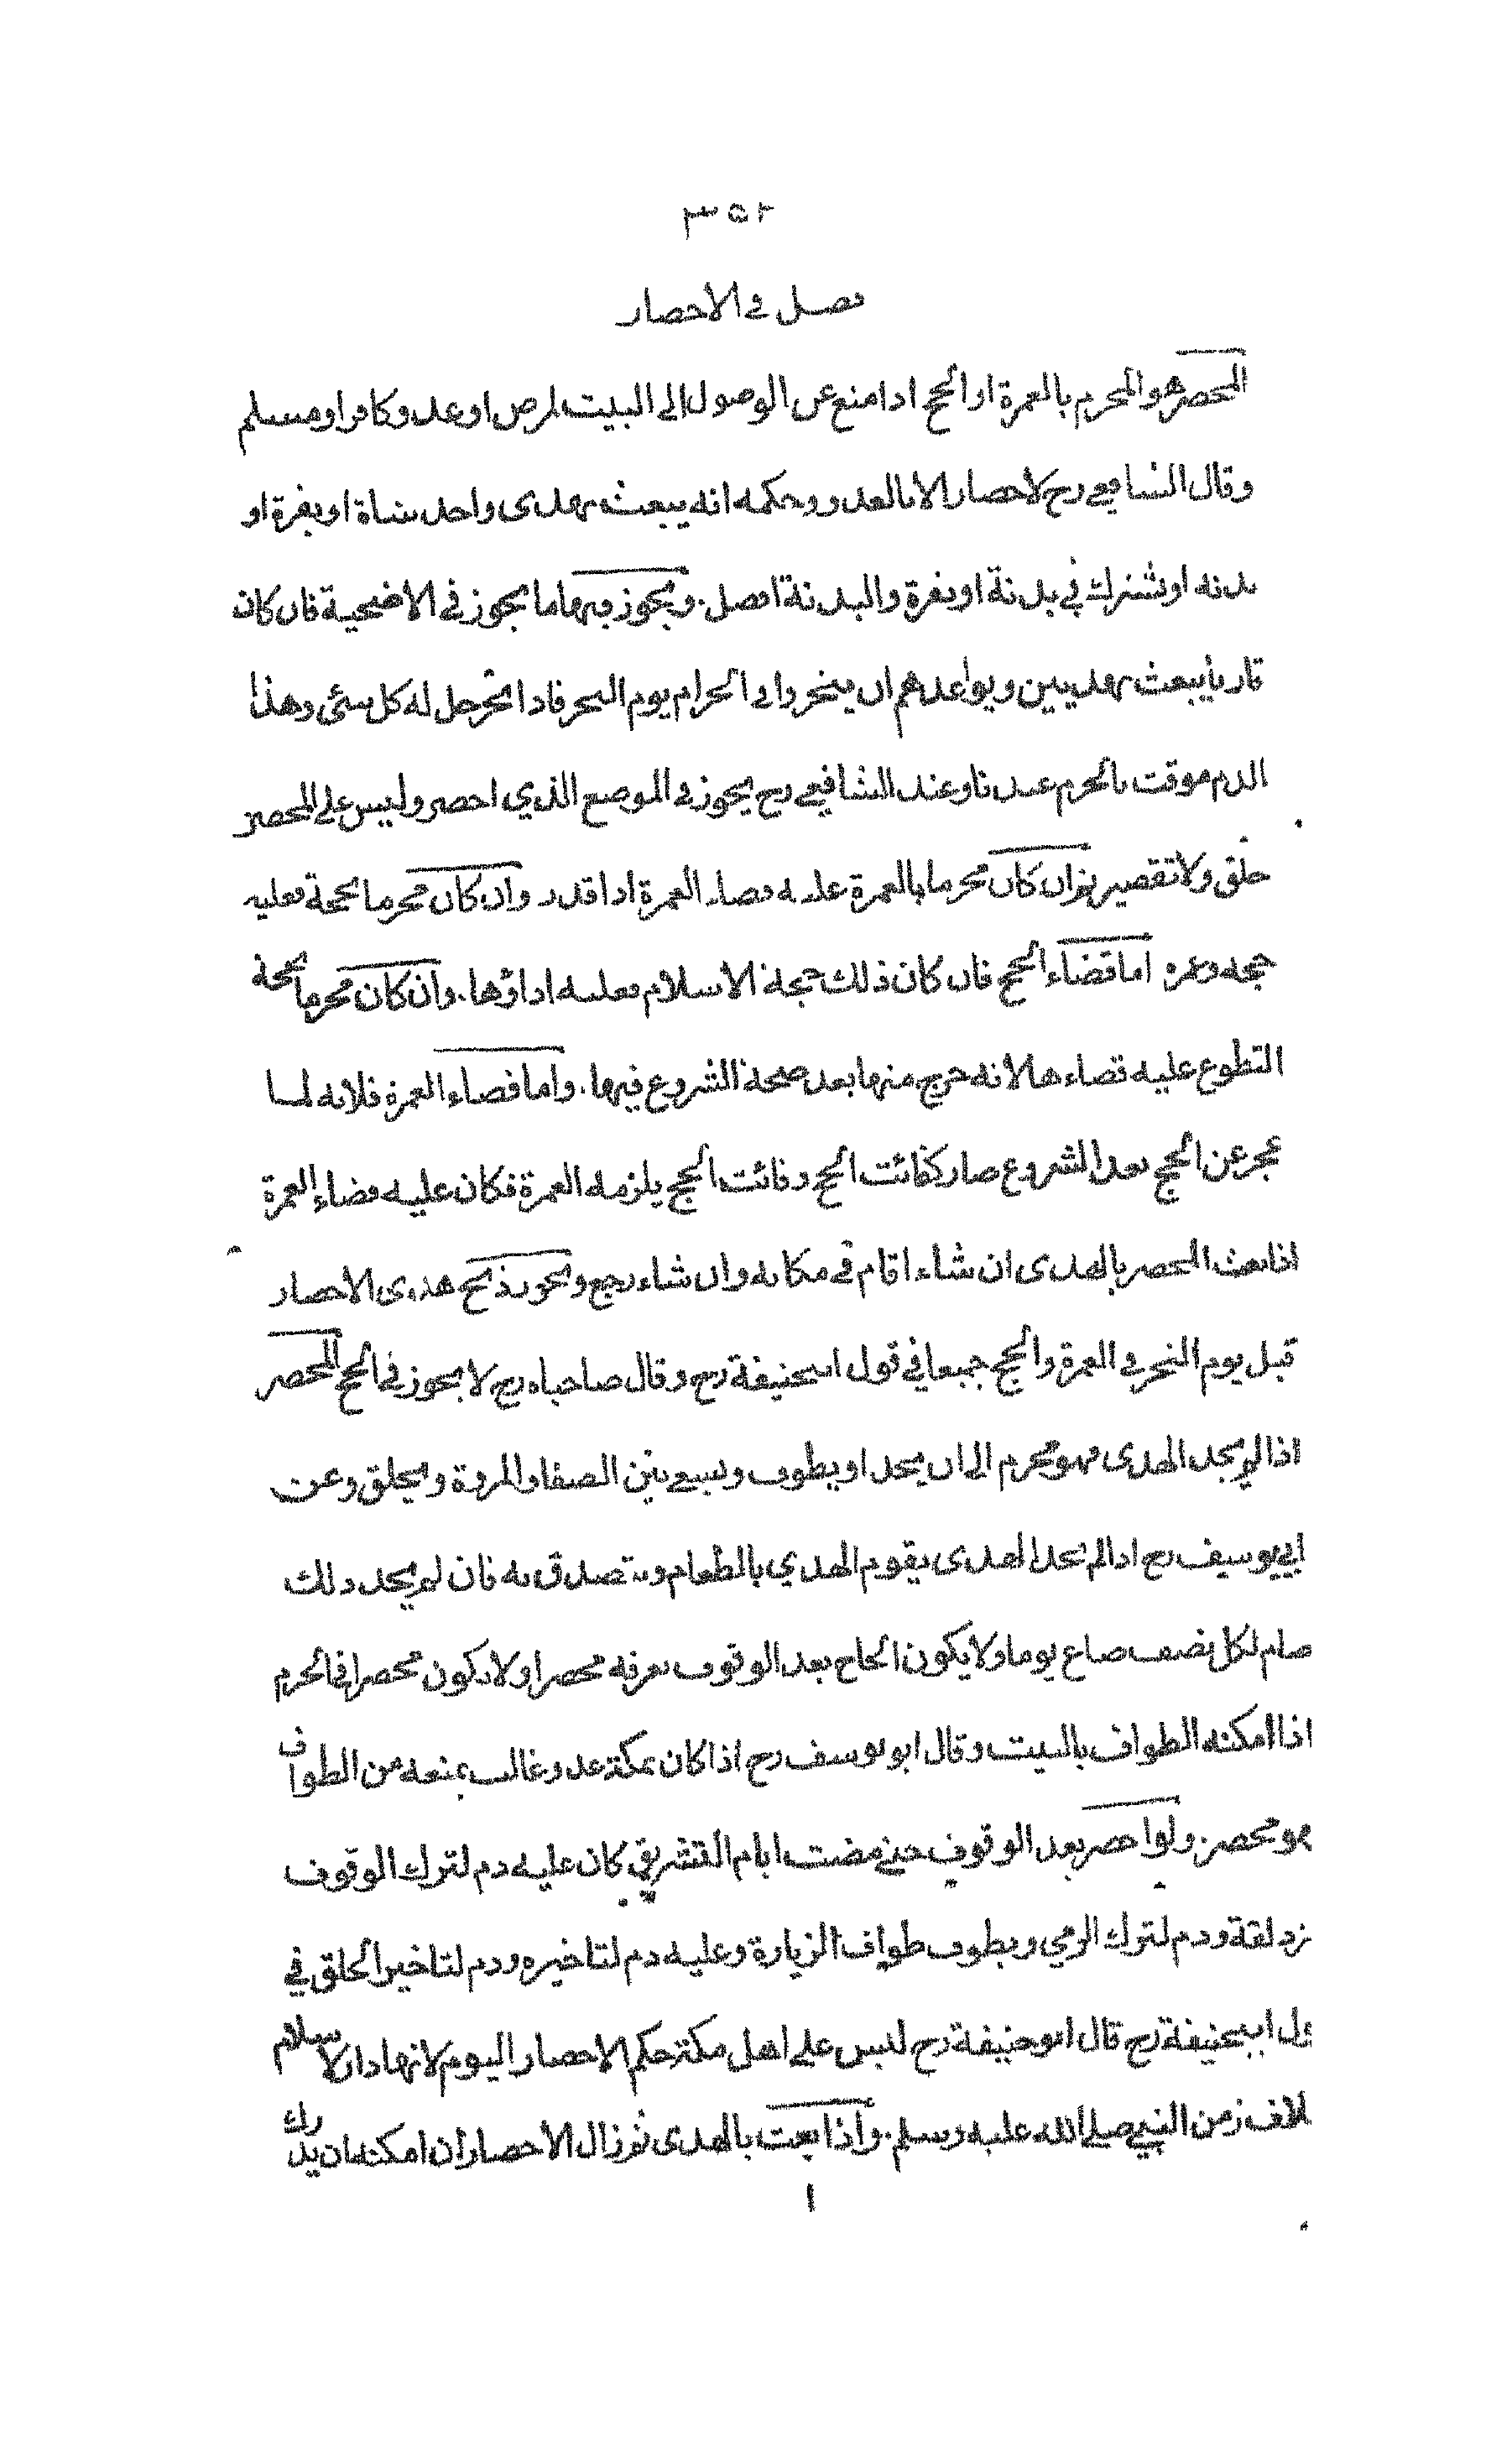 ٣٥٢
فصل في الاحصار
المحصر هو المحرم بالعمرة او الحج اذا منع عن الوصول الى البيت لمرض او عدو كافر او مسلم
وقال الشافعي رح لا احصار الا بالعدو وحكمه انه يبعث بهدى واحد شاة او بقرة او
بدنه او يشترك في بدنة او بقرة والبدنة افضل. ويجوز فيها ما يجوز في الاضحية فان كان
قارنا يبعث بهديين ويواعدهم ان ينحروا في الحرام يوم النحر فاذا نحر حل له كل شئ وهذا
الدم موقت بالحرم عندنا وعند الشافعي رح يجوز في الموضع الذي احصر وليس على المحصر
حلق ولا تقصير ثم ان كان محرما بالعمرة عليه قضاء العمرة اذا قدر وان كان محرما بحجة فعليه
حجه وعمره اما قضاء الحج فان كان ذلك حجة الاسلام فعليه اداؤها. وان كان محرما بحجة
التطوع عليه قضاءها لانه خرج منها بعد صحة الشروع فيها. واما قضاء العمرة فلانه لما
عجز عن الحج بعد الشروع صار كفائت الحج وفائت الحج يلزمه العمرة فكان عليه قضاء العمرة
اذا بعث المحصر بالهدى ان شاء اقام في مكانه وان شاء رجع ويجوز ذبح هدى الاحصار
قبل يوم النحر في العمرة والحج جميعا في قول ابيحنيفة رح وقال صاحباه رح لا يجوز في الحج المحصر
اذا لم يجد الهدى فهو محرم الى ان يجد او يطوف ويسعي بين الصفا والمروة ويحلق وعن
ابي يوسف رح اذا لم يجد الهدى يقوم الهدي بالطعام ويتصدق به فان لم يجد ذلك
صام لكل نصف صاع يوما ولا يكون الحاج بعد الوقوف بعرفه محصرا ولا يكون محصرا في الحرم
اذا امكنه الطواف بالبيت وقال ابو يوسف رح اذا كان بمكة عدو غالب يمنعه من الطواف
فهو محصر. ولو احصر بعد الوقوف حتى مضت ايام التشريق كان عليه دم لترك الوقوف
زدلفة ودم لترك الرمي ويطوف طواف الزيارة وعليه دم لتاخيره ودم لتاخير الحلق في
ول ابيحنيفة رح قال ابو حنيفة رح ليس على اهل مكة حكم الاحصار اليوم لانها دار الاسلام
لاف زمن النبي صلى الله عليه وسلم. واذا بعث بالهدى ثم زال الاحصار ان امكنه ان يدرك